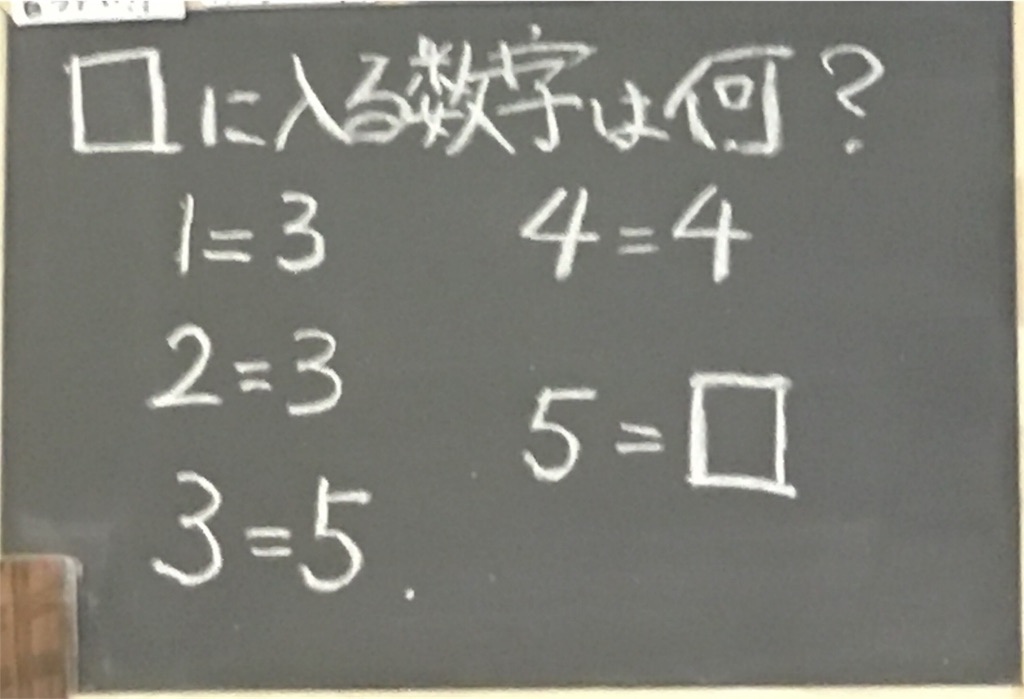 □に入る数字は何?
1=3
2=3
3=5
4=4
5=□